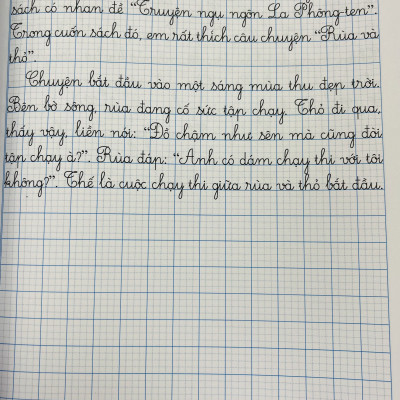 sách có nhan đề "Truyện ngụ ngôn La Phông-ten".
Trong cuốn sách đó, em rất thích câu chuyện "Rùa và
thỏ".
Chuyện bắt đầu vào một sáng mùa thu đẹp trời.
Bên bờ sông, rùa đang cố sức tập chạy. Thỏ đi qua,
thấy vậy, liền nói: "Đồ chậm như sên mà cũng đòi
tập chạy à?". Rùa đáp: "Anh có dám chạy thi với tôi
không?". Thế là cuộc chạy thi giữa rùa và thỏ bắt đầu.